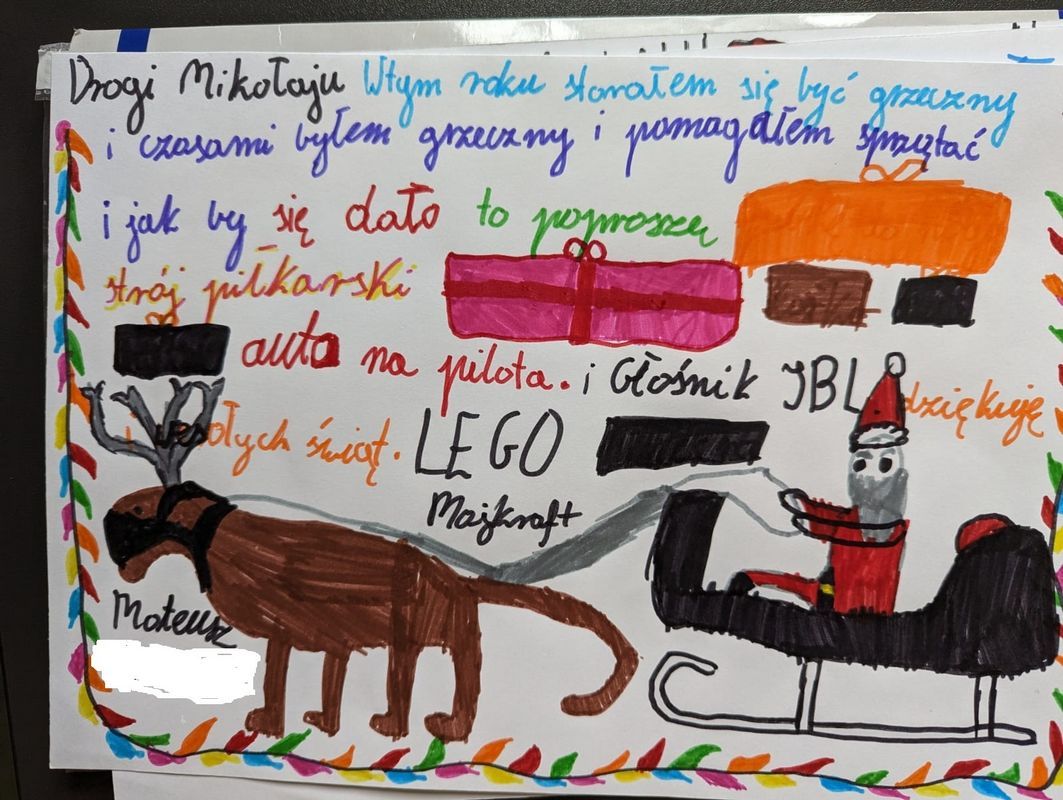 Drogi Mikołaju Wtym roku starałem się być grzeczny
i czasami byłem grzeczny i pomagałem sprzątać
i jak by się dało to poproszę
strój piłkarski
auto na pilota. i Głośnik JBL dziękuję
i wesołych świąt. LEGO
Majkraft
Mateusz